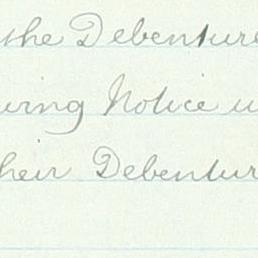 the Debenture
ving Notice
their Debentur